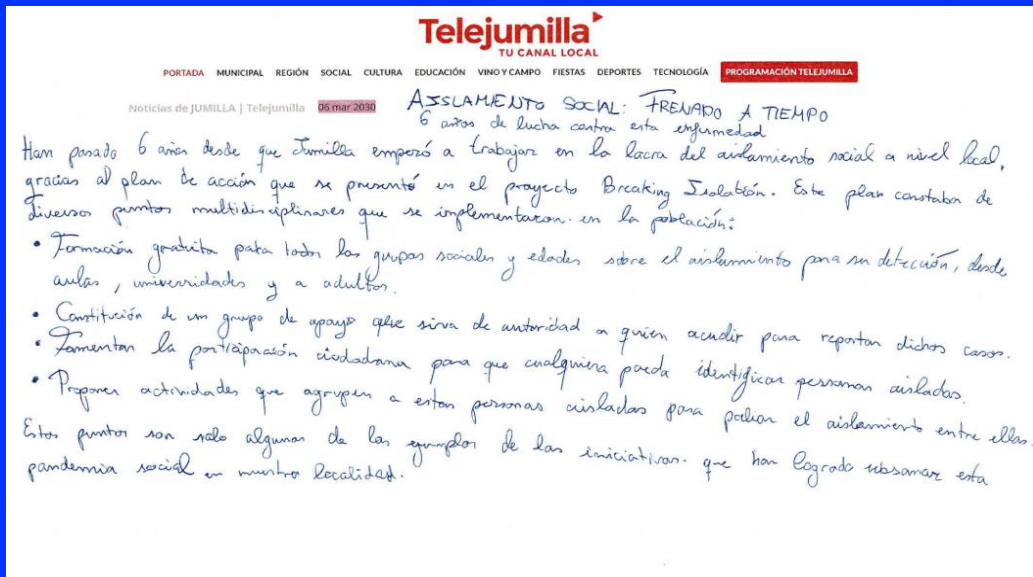 Telejumilla
TU CANAL LOCAL
PORTADA MUNICIPAL REGIÓN SOCIAL CULTURA EDUCACIÓN VINO Y CAMPO FIESTAS DEPORTES TECNOLOGÍA PROGRAMACIÓN TELEJUMILLA
Noticias de JUMILLA | Telejumilla 06 mar 2030
AISLAMIENTO SOCIAL: FRENADO A TIEMPO
6 años de lucha contra esta enfermedad
Han pasado 6 años desde que Jumilla empezó a trabajar en la lacra del aislamiento social a nivel local,
gracias al plan de acción que se presentó en el proyecto Breaking Isolation. Este plan constaba de
diversos puntos multidisciplinares que se implementaron en la población:
• Formación gratuita para todos los grupos sociales y edades sobre el aislamiento para su detección, desde
aulas, universidades y a adultos.
• Constitución de un grupo de apoyo que sirva de autoridad a quien acudir para reportar dichos casos.
• Fomentar la participación ciudadana para que cualquiera pueda identificar personas aisladas.
• Proponer actividades que agrupen a estas personas aisladas para paliar el aislamiento entre ellas.
Estos puntos son solo algunos de los ejemplos de las iniciativas que han logrado subsanar esta
pandemia social en nuestra localidad.